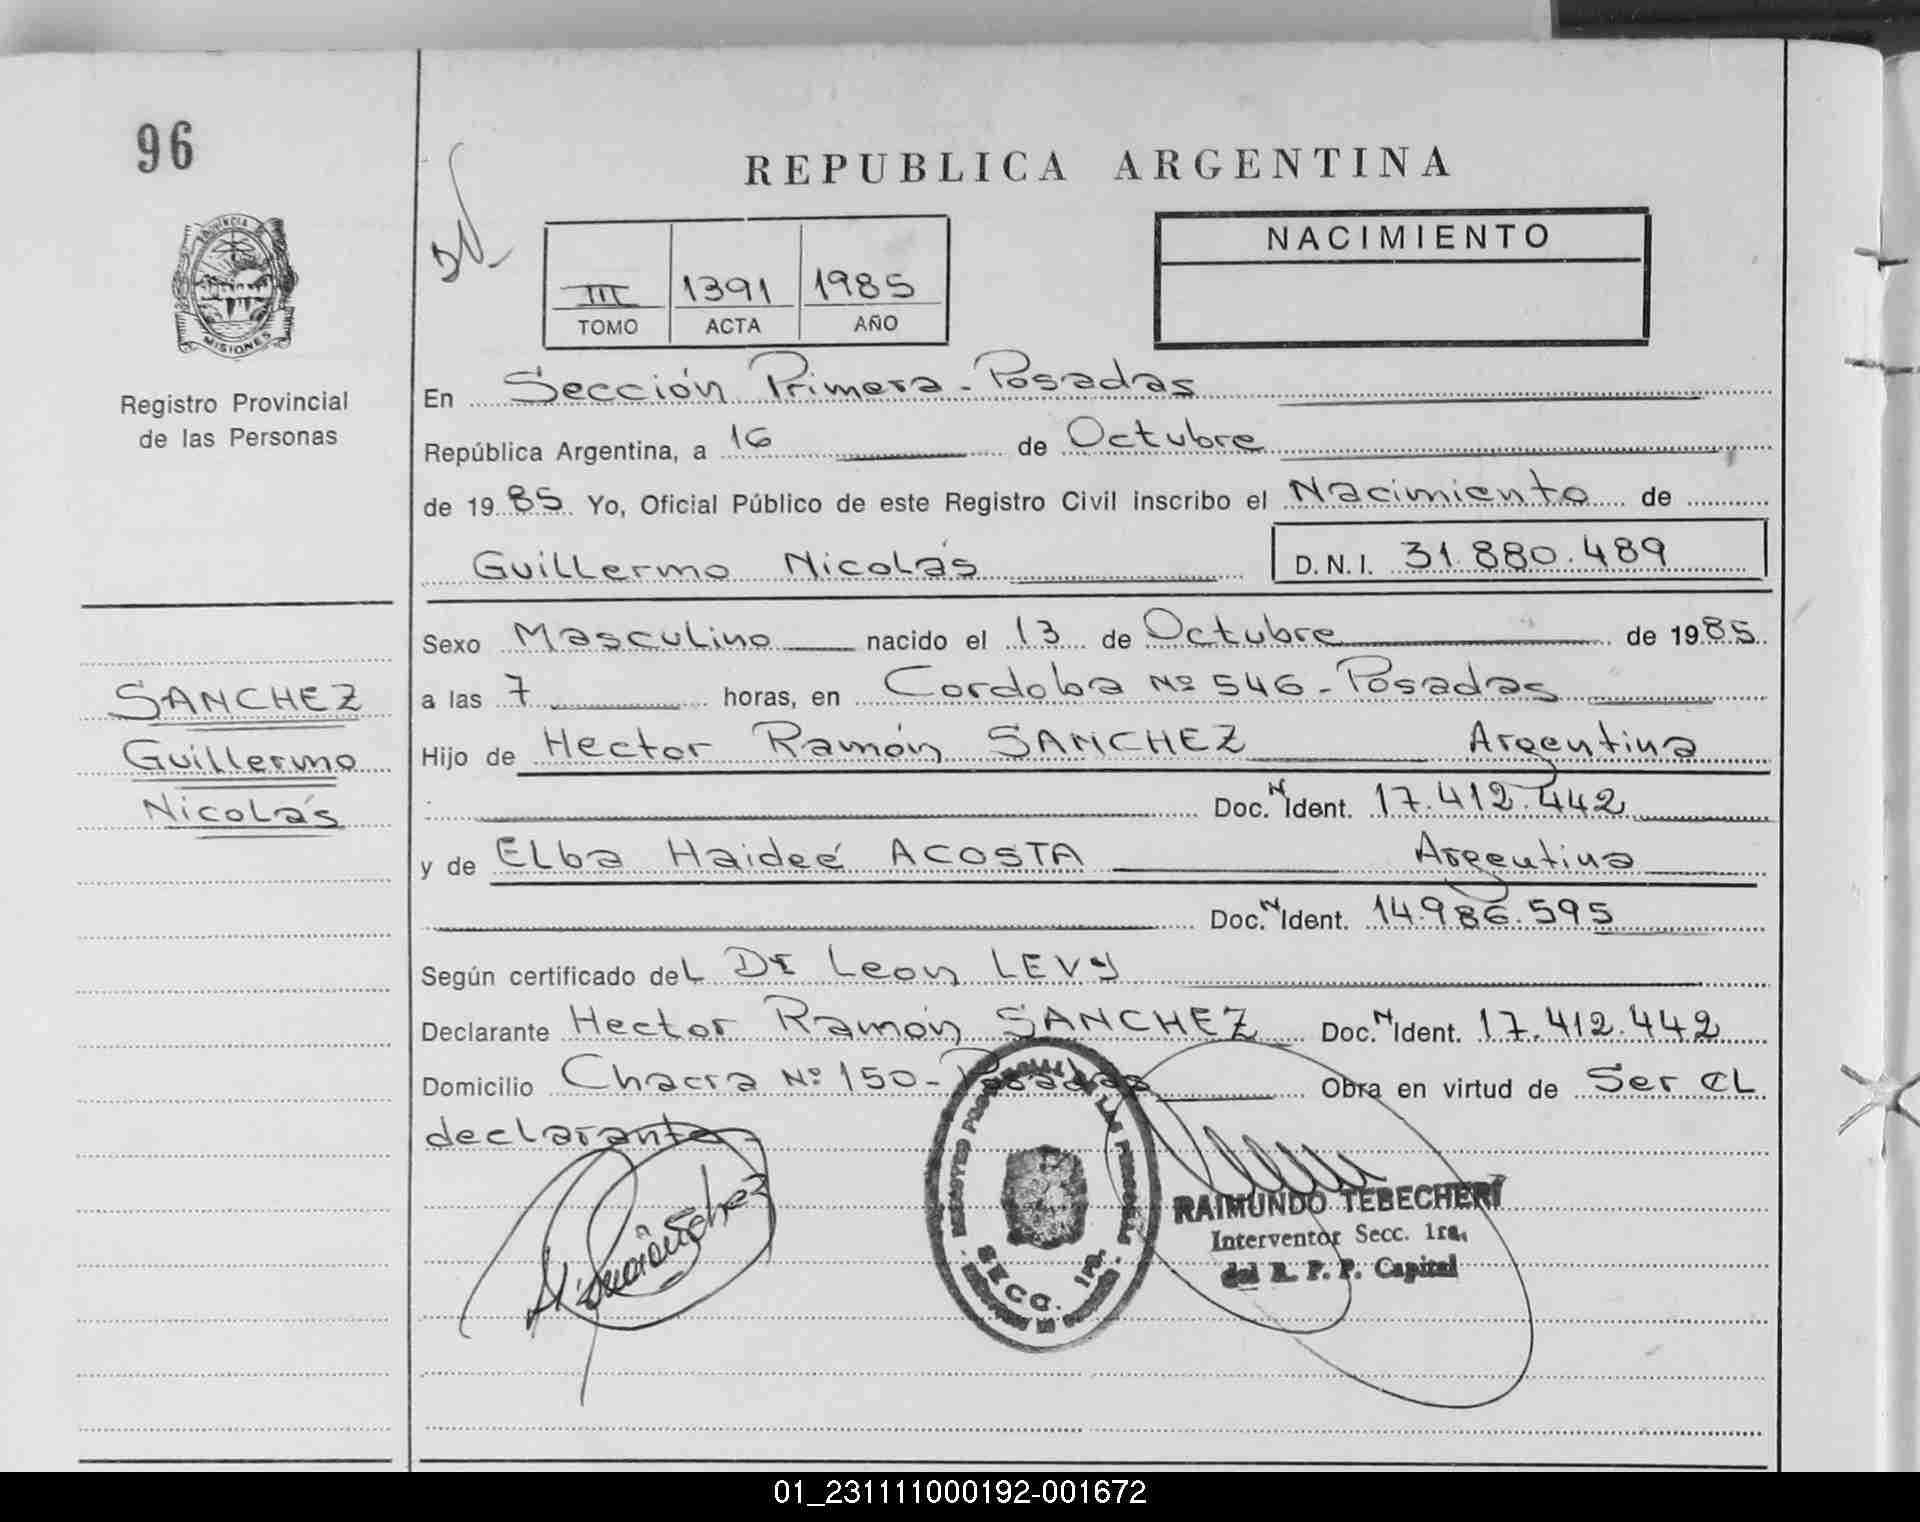 96
PROVINCIA DE
MISIONES
Registro Provincial
de las Personas
SANCHEZ
Guillermo
Nicolás
REPUBLICA ARGENTINA
III 1391 1985
TOMO ACTA AÑO
NACIMIENTO
En Sección Primera - Posadas
República Argentina, a 16 de Octubre
de 1985 Yo, Oficial Público de este Registro Civil inscribo el Nacimiento de
Guillermo Nicolás D.N.I. 31.880.489
Sexo Masculino nacido el 13 de Octubre de 1985
a las 7 horas, en Cordoba Nº 546 - Posadas
Hijo de Hector Ramón SANCHEZ Argentina
Doc. N Ident. 17.412.442
y de ELba Haideé ACOSTA Argentina
Doc. N Ident. 14.986.595
Según certificado deL Dr Leon LEVY
Declarante Hector Ramón SANCHEZ Doc. N Ident. 17.412.442
Domicilio Chacra Nº 150 - Posadas Obra en virtud de Ser eL
declarante
SECC. 1ra.
RAIMUNDO TEBECHERI
Interventor Secc. 1ra.
del R. P. P. Capital
01_231111000192-001672